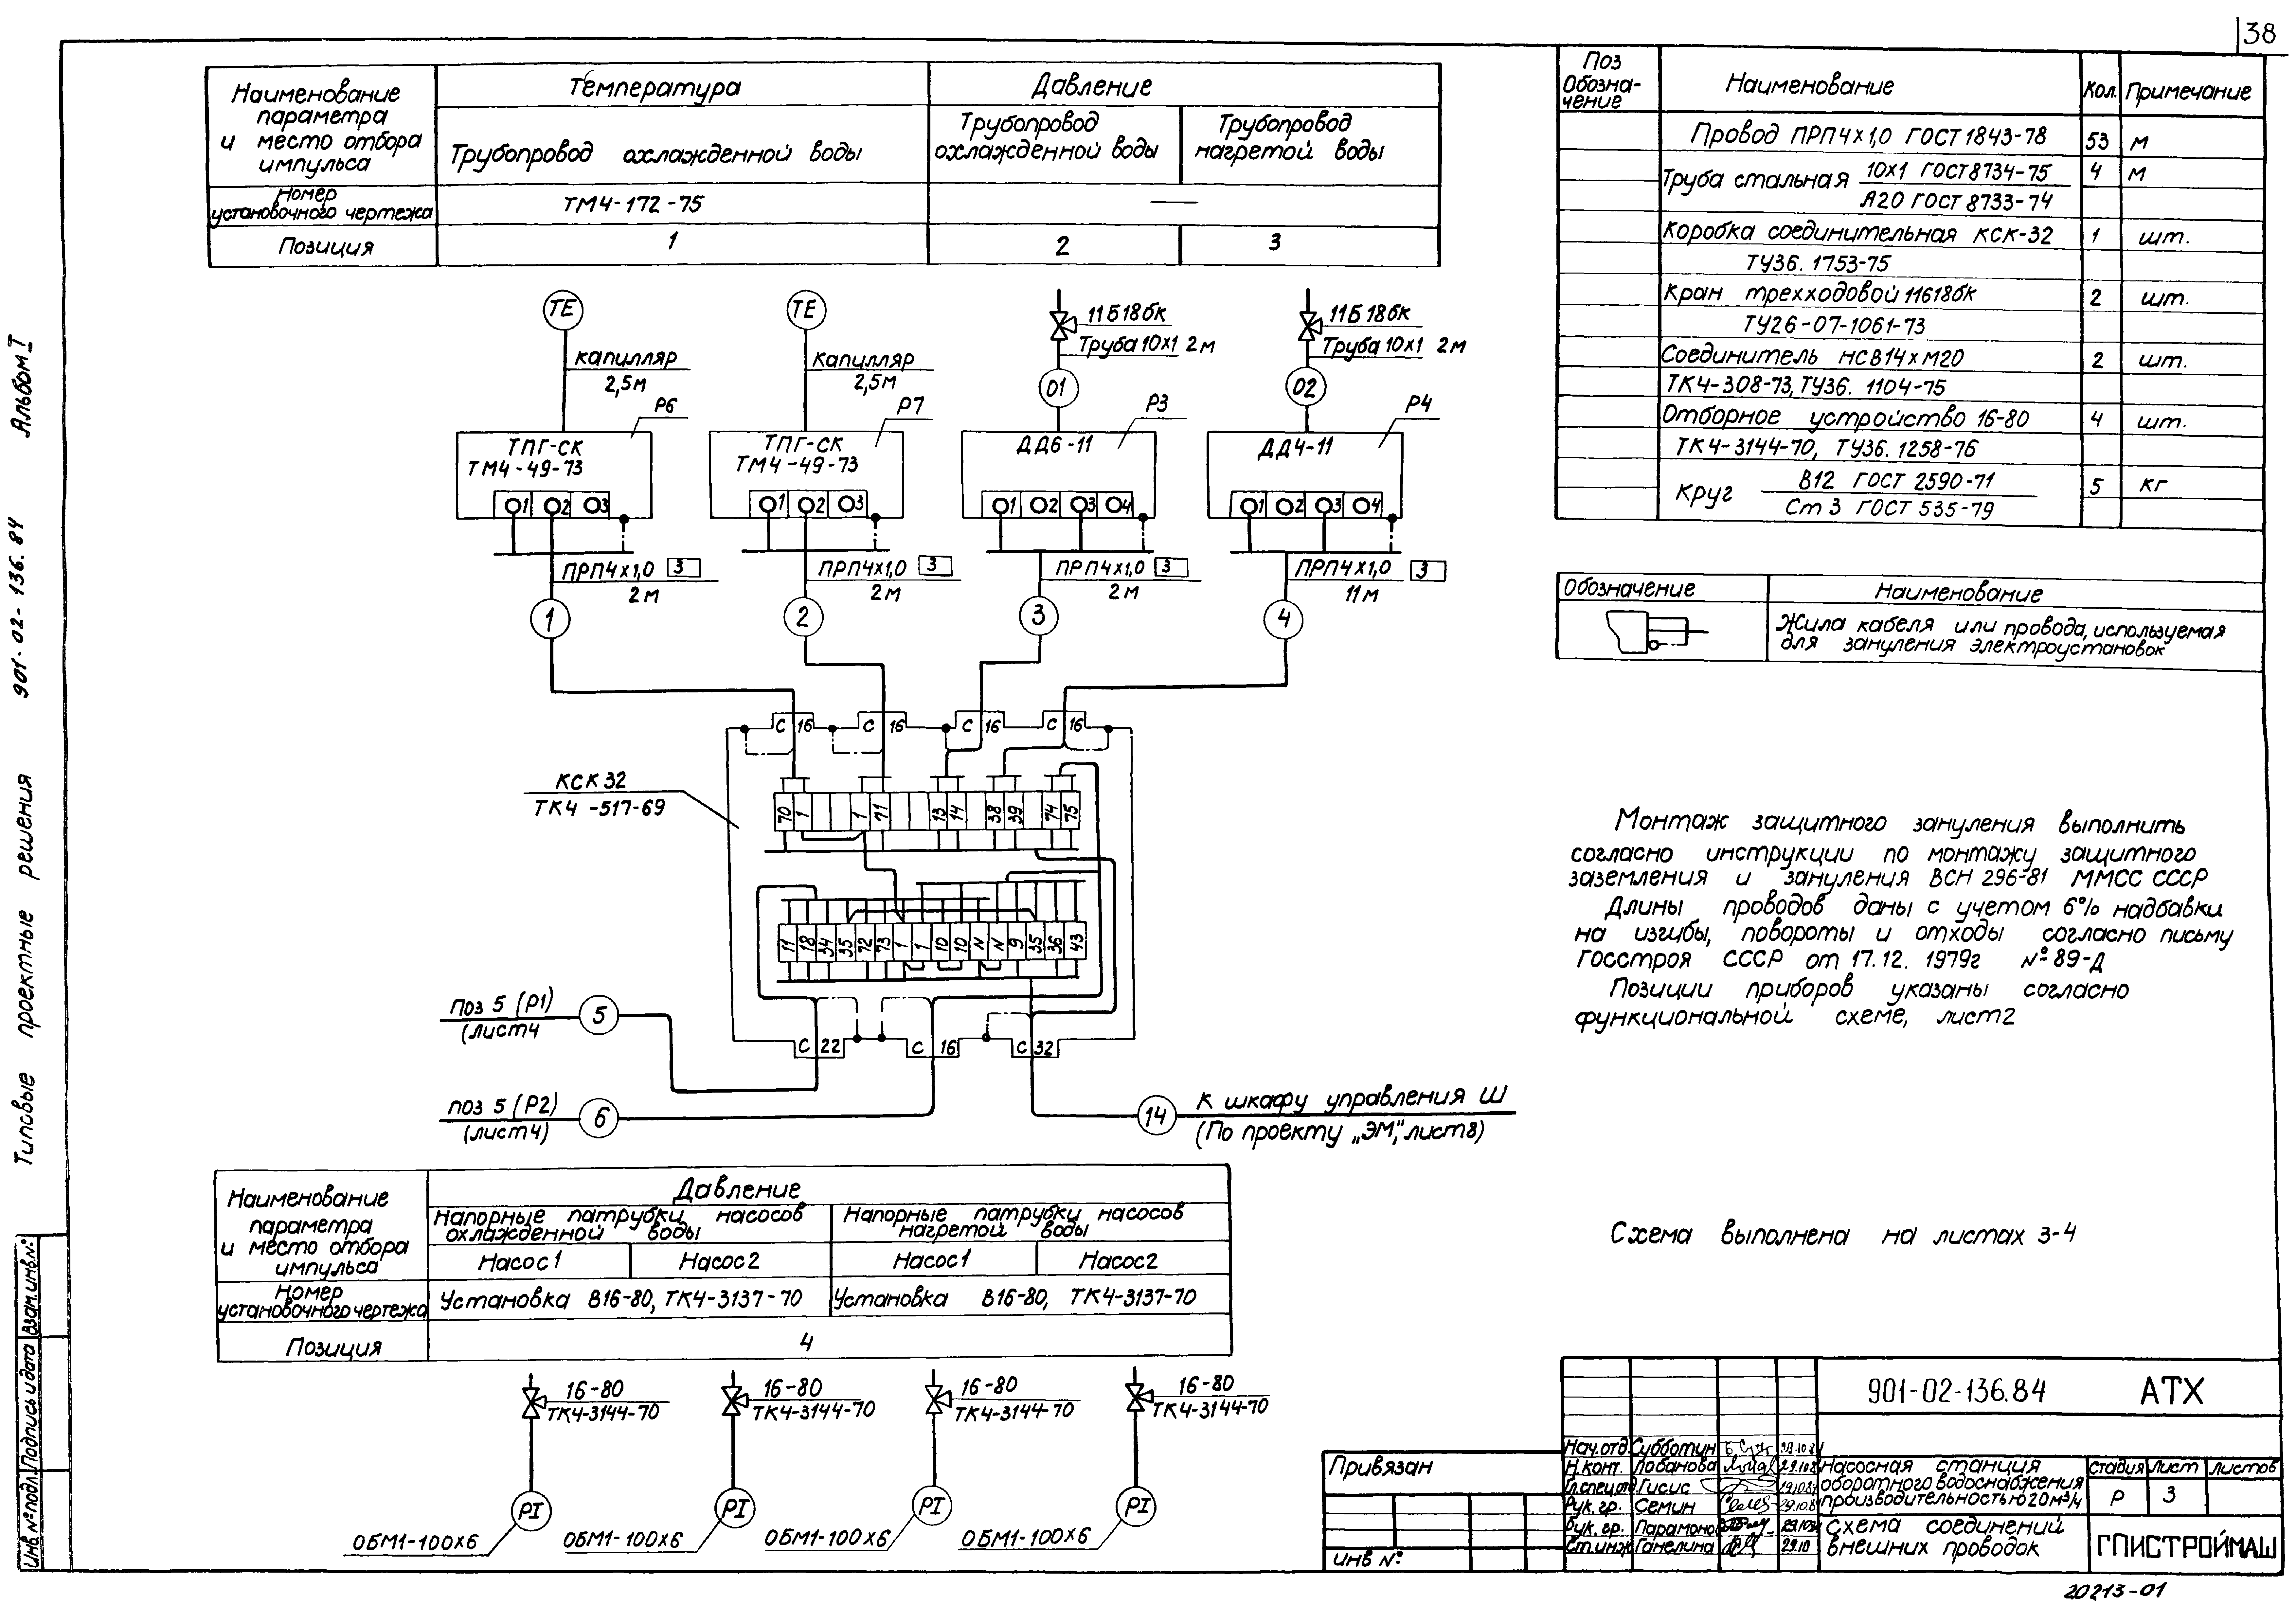 38
Альбом I
901-02-136.84
Типовые проектные решения
Взам.инв.№
Подпись и дата
Инв № подл.
Наименование параметра и место отбора импульса
Температура
Давление
Трубопровод охлажденной воды
Трубопровод охлажденной воды
Трубопровод нагретой воды
Номер установочного чертежа
ТМ4-172-75
—
Позиция
1
2
3
ТЕ
капилляр
2,5м
Р6
ТПГ-СК
ТМ4-49-73
1 2 3
ПРП4х1,0 3
2м
1
ТЕ
капилляр
2,5м
Р7
ТПГ-СК
ТМ4-49-73
1 2 3
ПРП4х1,0 3
2м
2
11Б18бк
Труба 10х1 2м
01
Р3
ДД6-11
1 2 3 4
ПРП4х1,0 3
2м
3
11Б18бк
Труба 10х1 2м
02
Р4
ДД4-11
1 2 3 4
ПРП4х1,0 3
11м
4
С 16 С 16 С 16 С 16
КСК 32
ТК4-517-69
70 1 1 71 13 14 38 39 74 75
11 18 34 35 72 73 1 1 10 10 N N 9 35 36 43
С 22 С 16 С 32
поз 5 (Р1)
(лист4
5
поз 5 (Р2)
(лист4)
6
14
К шкафу управления Ш
(По проекту „ЭМ,"лист8)
Наименование параметра и место отбора импульса
Давление
Напорные патрубки насосов охлажденной воды
Напорные патрубки насосов нагретой воды
Насос1
Насос2
Насос1
Насос2
Номер установочного чертежа
Установка В16-80, ТК4-3137-70
Установка В16-80, ТК4-3137-70
Позиция
4
16-80
ТК4-3144-70
16-80
ТК4-3144-70
16-80
ТК4-3144-70
16-80
ТК4-3144-70
PI
PI
PI
PI
ОБМ1-100х6
ОБМ1-100х6
ОБМ1-100х6
ОБМ1-100х6
Поз Обозна-чение
Наименование
Кол.
Примечание
Провод ПРП4х1,0 ГОСТ1843-78 53 м
Труба стальная 10х1 ГОСТ8734-75 4 м
А20 ГОСТ 8733-74
Коробка соединительная КСК-32 1 шт.
ТУ36.1753-75
Кран трехходовой 11б18бк 2 шт.
ТУ26-07-1061-73
Соединитель НСВ14хМ20 2 шт.
ТК4-308-73, ТУ36.1104-75
Отборное устройство 16-80 4 шт.
ТК4-3144-70, ТУ36.1258-76
Круг В12 ГОСТ 2590-71 5 кг
Ст 3 ГОСТ 535-79
Обозначение
Наименование
Жила кабеля или провода, используемая
для зануления электроустановок
Монтаж защитного зануления выполнить
согласно инструкции по монтажу защитного
заземления и зануления ВСН 296-81 ММСС СССР
Длины проводов даны с учетом 6% надбавки
на изгибы, повороты и отходы согласно письму
Госстроя СССР от 17.12.1979г №89-Д
Позиции приборов указаны согласно
функциональной схеме, лист2
Схема выполнена на листах 3-4
Привязан
Инв №
901-02-136.84 АТХ
Нач.отд. Субботин
Н.конт. Лобанова
Гл.спец.отд Гисис
Рук. гр. Семин
Рук. гр.
Ст.инж Ганелина
Насосная станция
оборотного водоснабжения
производительностью 20м³/ч
стадия
Лист
Листов
Р
3
схема соединений
внешних проводок
ГПИСТРОЙМАШ
20213-01